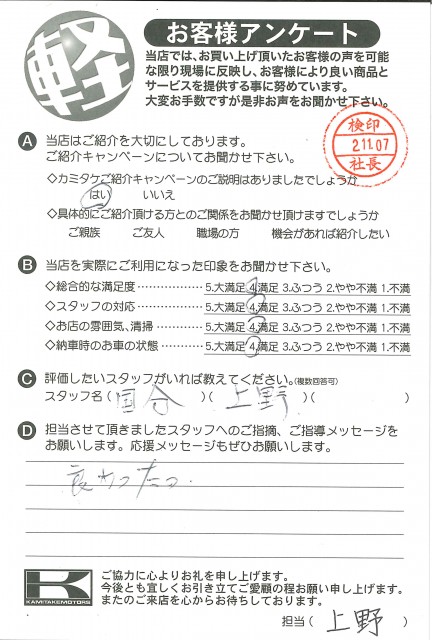 軽
お客様アンケート
当店では、お買い上げ頂いたお客様の声を可能
な限り現場に反映し、お客様により良い商品と
サービスを提供する事に努めています。
大変お手数ですが是非お声をお聞かせ下さい。
検印
2.11.07
社長
A 当店はご紹介を大切にしております。
ご紹介キャンペーンについてお聞かせ下さい。
◇カミタケご紹介キャンペーンのご説明はありましたでしょうか
はい いいえ
◇具体的にご紹介頂ける方とのご関係をお聞かせ頂けますでしょうか
ご親族 ご友人 職場の方 機会があれば紹介したい
B 当店を実際にご利用になった印象をお聞かせ下さい。
◇総合的な満足度 5.大満足 4.満足 3.ふつう 2.やや不満 1.不満
◇スタッフの対応 5.大満足 4.満足 3.ふつう 2.やや不満 1.不満
◇お店の雰囲気、清掃 5.大満足 4.満足 3.ふつう 2.やや不満 1.不満
◇納車時のお車の状態 5.大満足 4.満足 3.ふつう 2.やや不満 1.不満
C 評価したいスタッフがいれば教えてください。(複数回答可)
スタッフ名( 国分 )( 上野 )( )
D 担当させて頂きましたスタッフへのご指摘、ご指導メッセージを
お願いします。応援メッセージもぜひお願いします。
良かったっ
K
KAMITAKEMOTORS
ご協力に心よりお礼を申し上げます。
今後とも宜しくお引き立てご愛顧の程お願い申し上げます。
またのご来店を心からお待ちしております。
担当( 上野 )